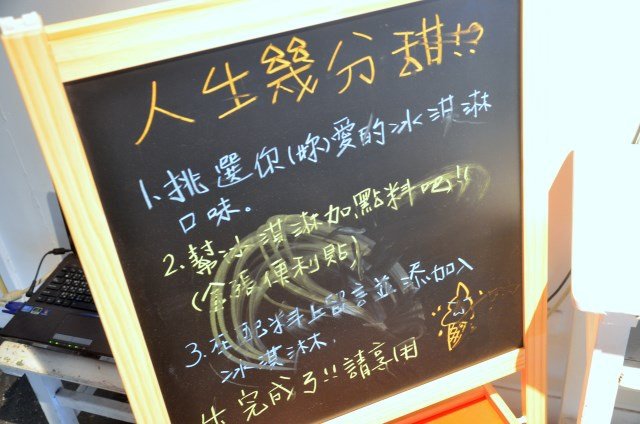 人生幾分甜!?
1.挑選你(妳)愛的冰淇淋
口味.
2.幫冰淇淋加點料吧!!
(拿張便利貼)
3.在配料上留言並添加入
冰淇淋.
完成了!!請享用